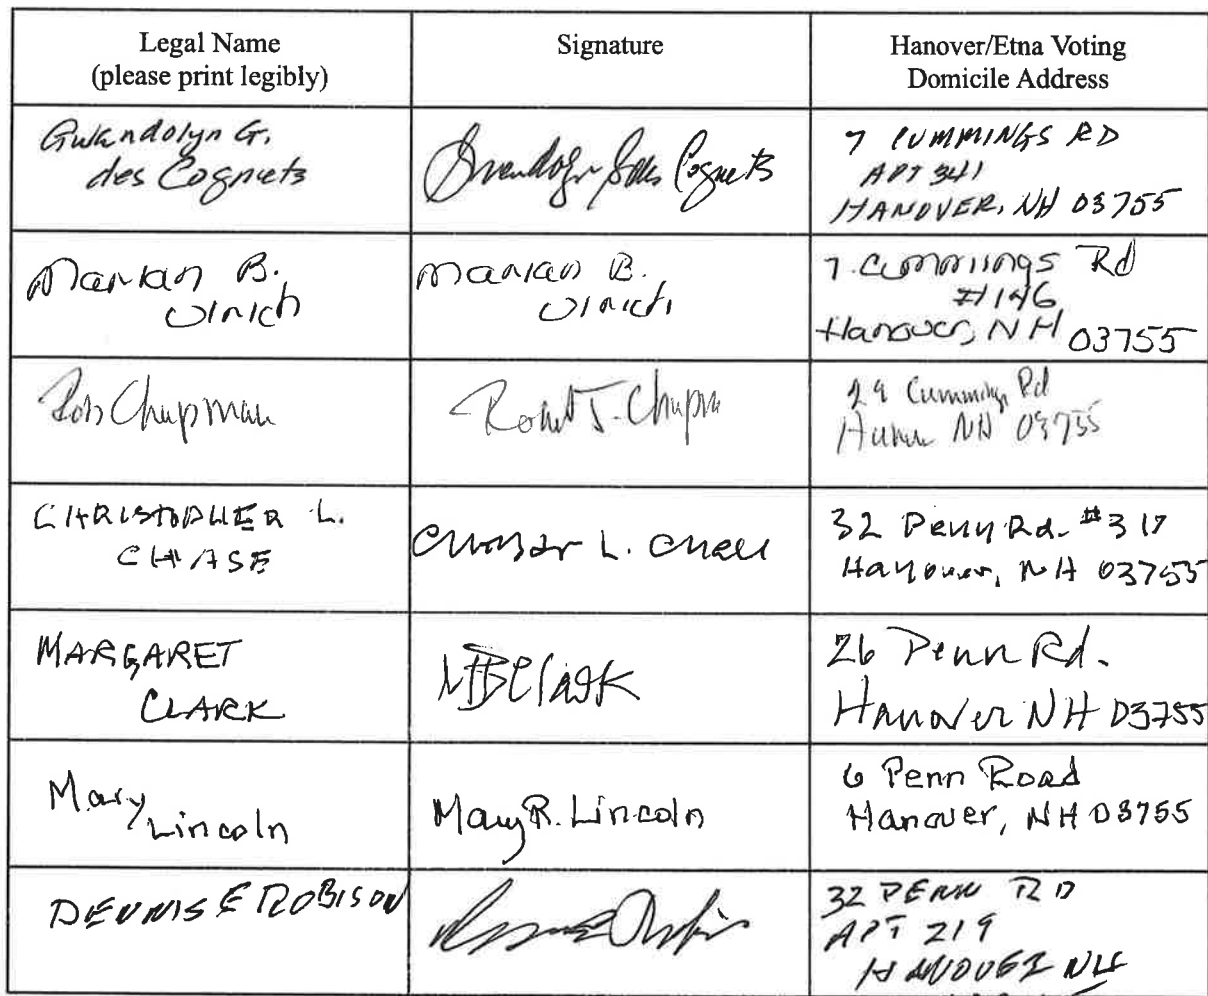 Legal Name
(please print legibly)
Signature
Hanover/Etna Voting
Domicile Address
Gwendolyn G.
des Cognets
Gwendolyn G des Cognets
7 CUMMINGS RD
APT 341
HANOVER, NH 03755
Marian B.
Ulrich
Marian B.
Ulrich
7 Cummings Rd
#146
Hanover, NH 03755
Rob Chapman
Robert J. Chapman
29 Cummings Rd
Hanover NH 03755
CHRISTOPHER L.
CHASE
Christopher L. Chase
32 Penn Rd. #317
Hanover, NH 03755
MARGARET
CLARK
MBClark
26 Penn Rd.
Hanover NH 03755
Mary
Lincoln
Mary R. Lincoln
6 Penn Road
Hanover, NH 03755
DENNIS E ROBISON
32 PENN RD
APT 219
HANOVER NH